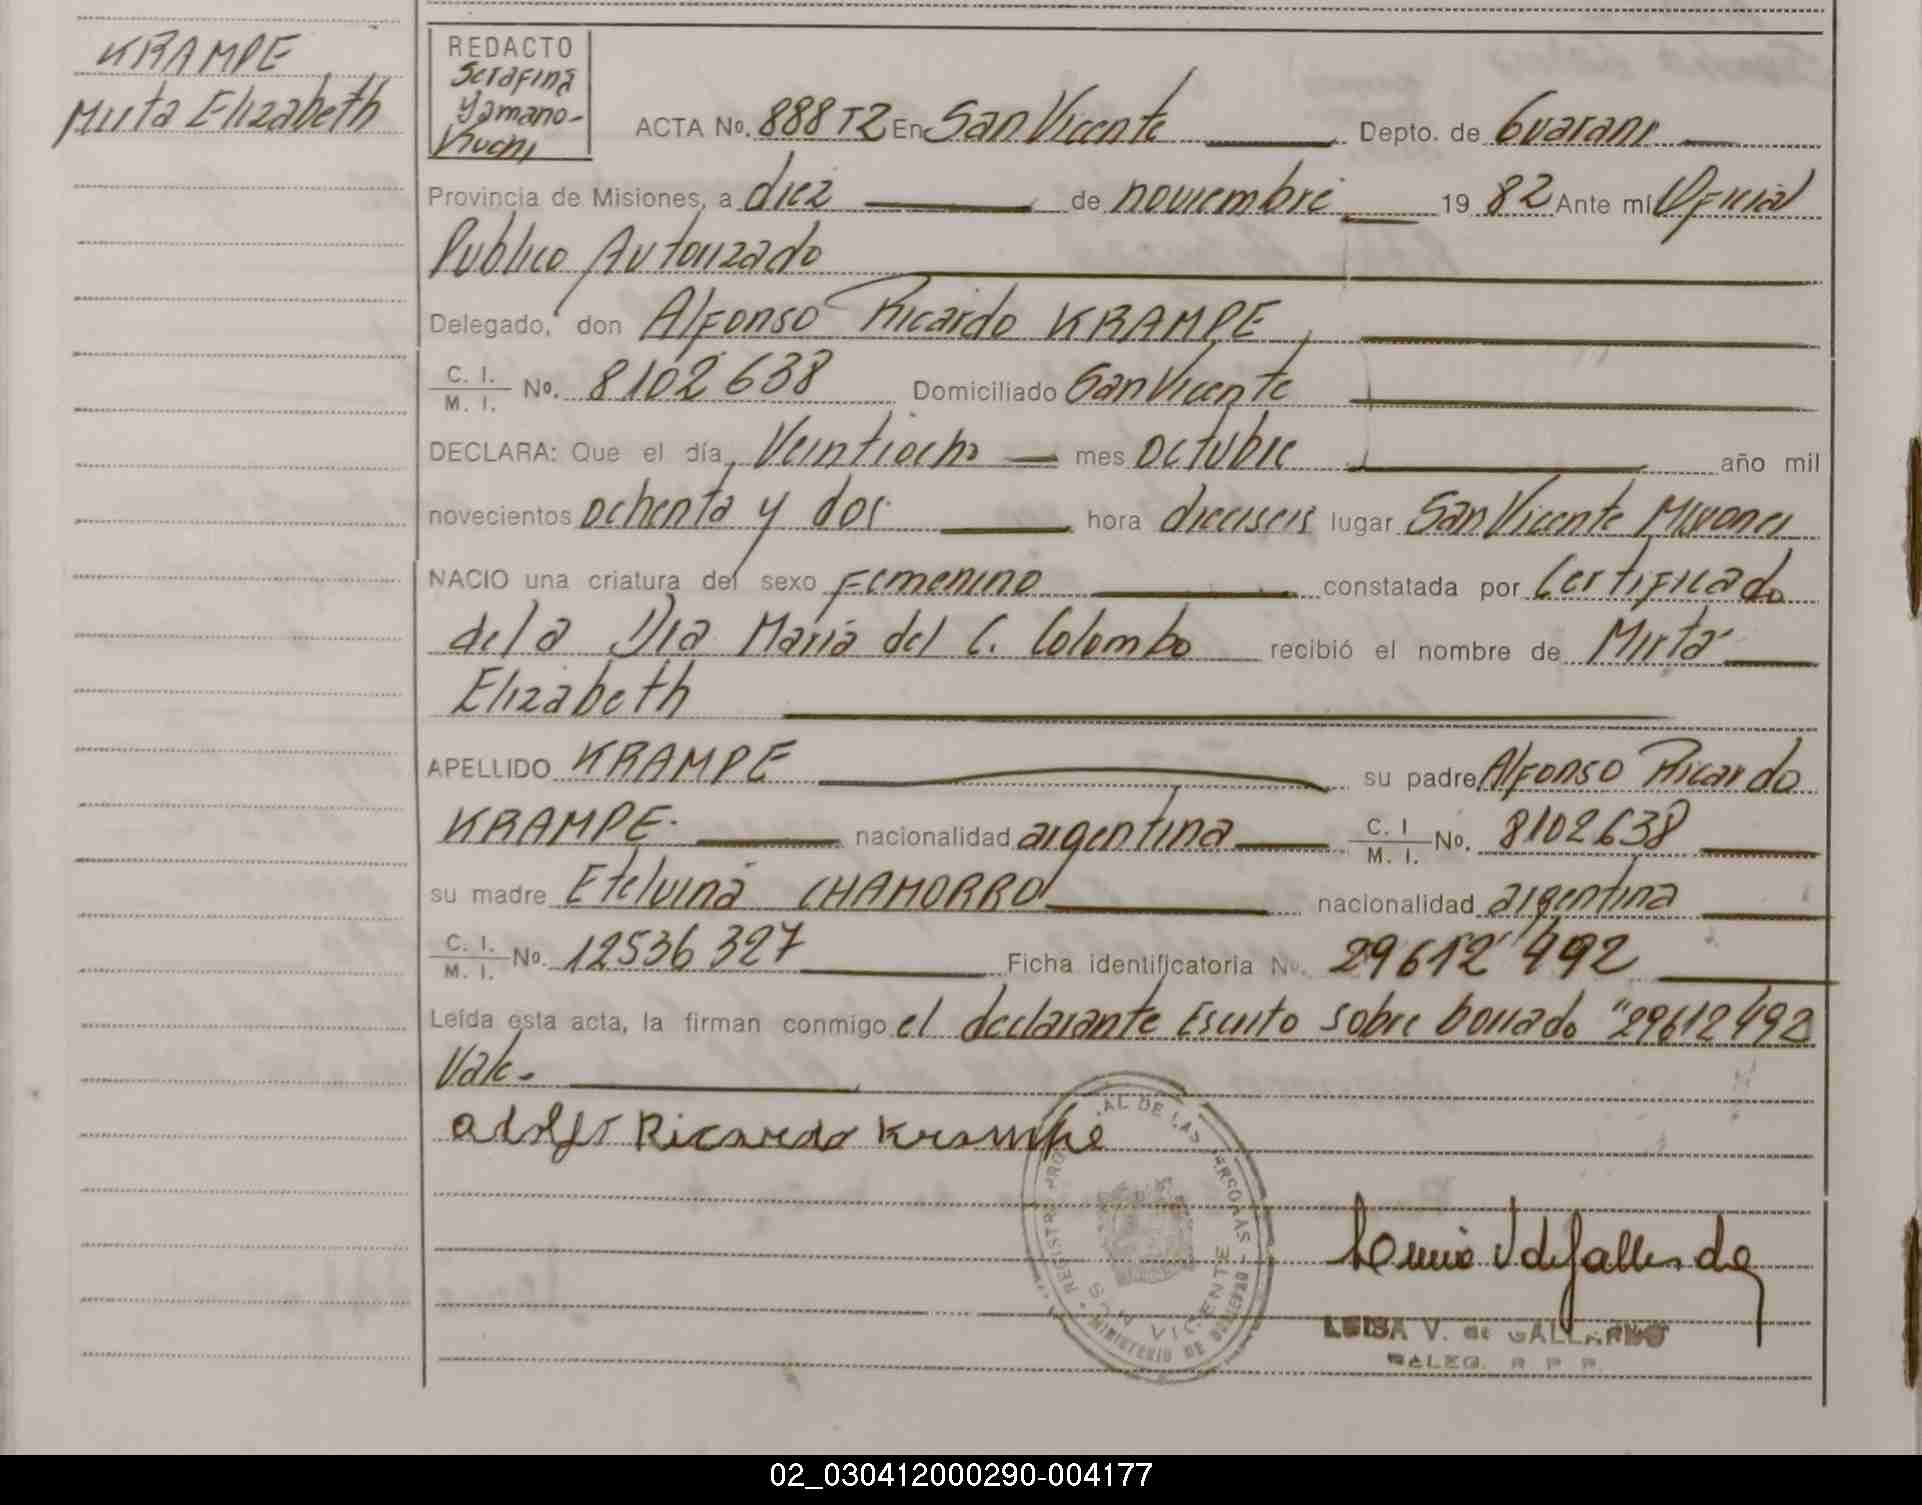 KRAMPE
Mirta Elizabeth
REDACTO
Serafina
Yamano-
Kuchi
ACTA No. 888 T2 En San Vicente Depto. de Guarani
Provincia de Misiones, a diez de noviembre 19 82 Ante mi Oficial
Publico Autorizado
Delegado, don Alfonso Ricardo KRAMPE
C. I. M. I. No. 8102638 Domiciliado San Vicente
DECLARA: Que el día Veintiocho mes octubre año mil
novecientos ochenta y dos hora dieciseis lugar San Vicente Misiones
NACIO una criatura del sexo femenino constatada por Certificado
de la Dra Maria del C. Colombo recibió el nombre de Mirta
Elizabeth
APELLIDO KRAMPE su padre Alfonso Ricardo
KRAMPE. nacionalidad argentina C. I M. I. No. 8102638
su madre Etelvina CHAMORRO nacionalidad argentina
C. I. M. I. No. 12536327 Ficha identificatoria No. 29612492
Leída esta acta, la firman conmigo el declarante Escrito sobre borrado "29612492
Vale.
Ricardo Krampe
REGISTRO PRO AL DE LAS PERSONAS
MINISTERIO DE
LUISA V. de GALLARDO
DELEG. R. P. P.
02_030412000290-004177